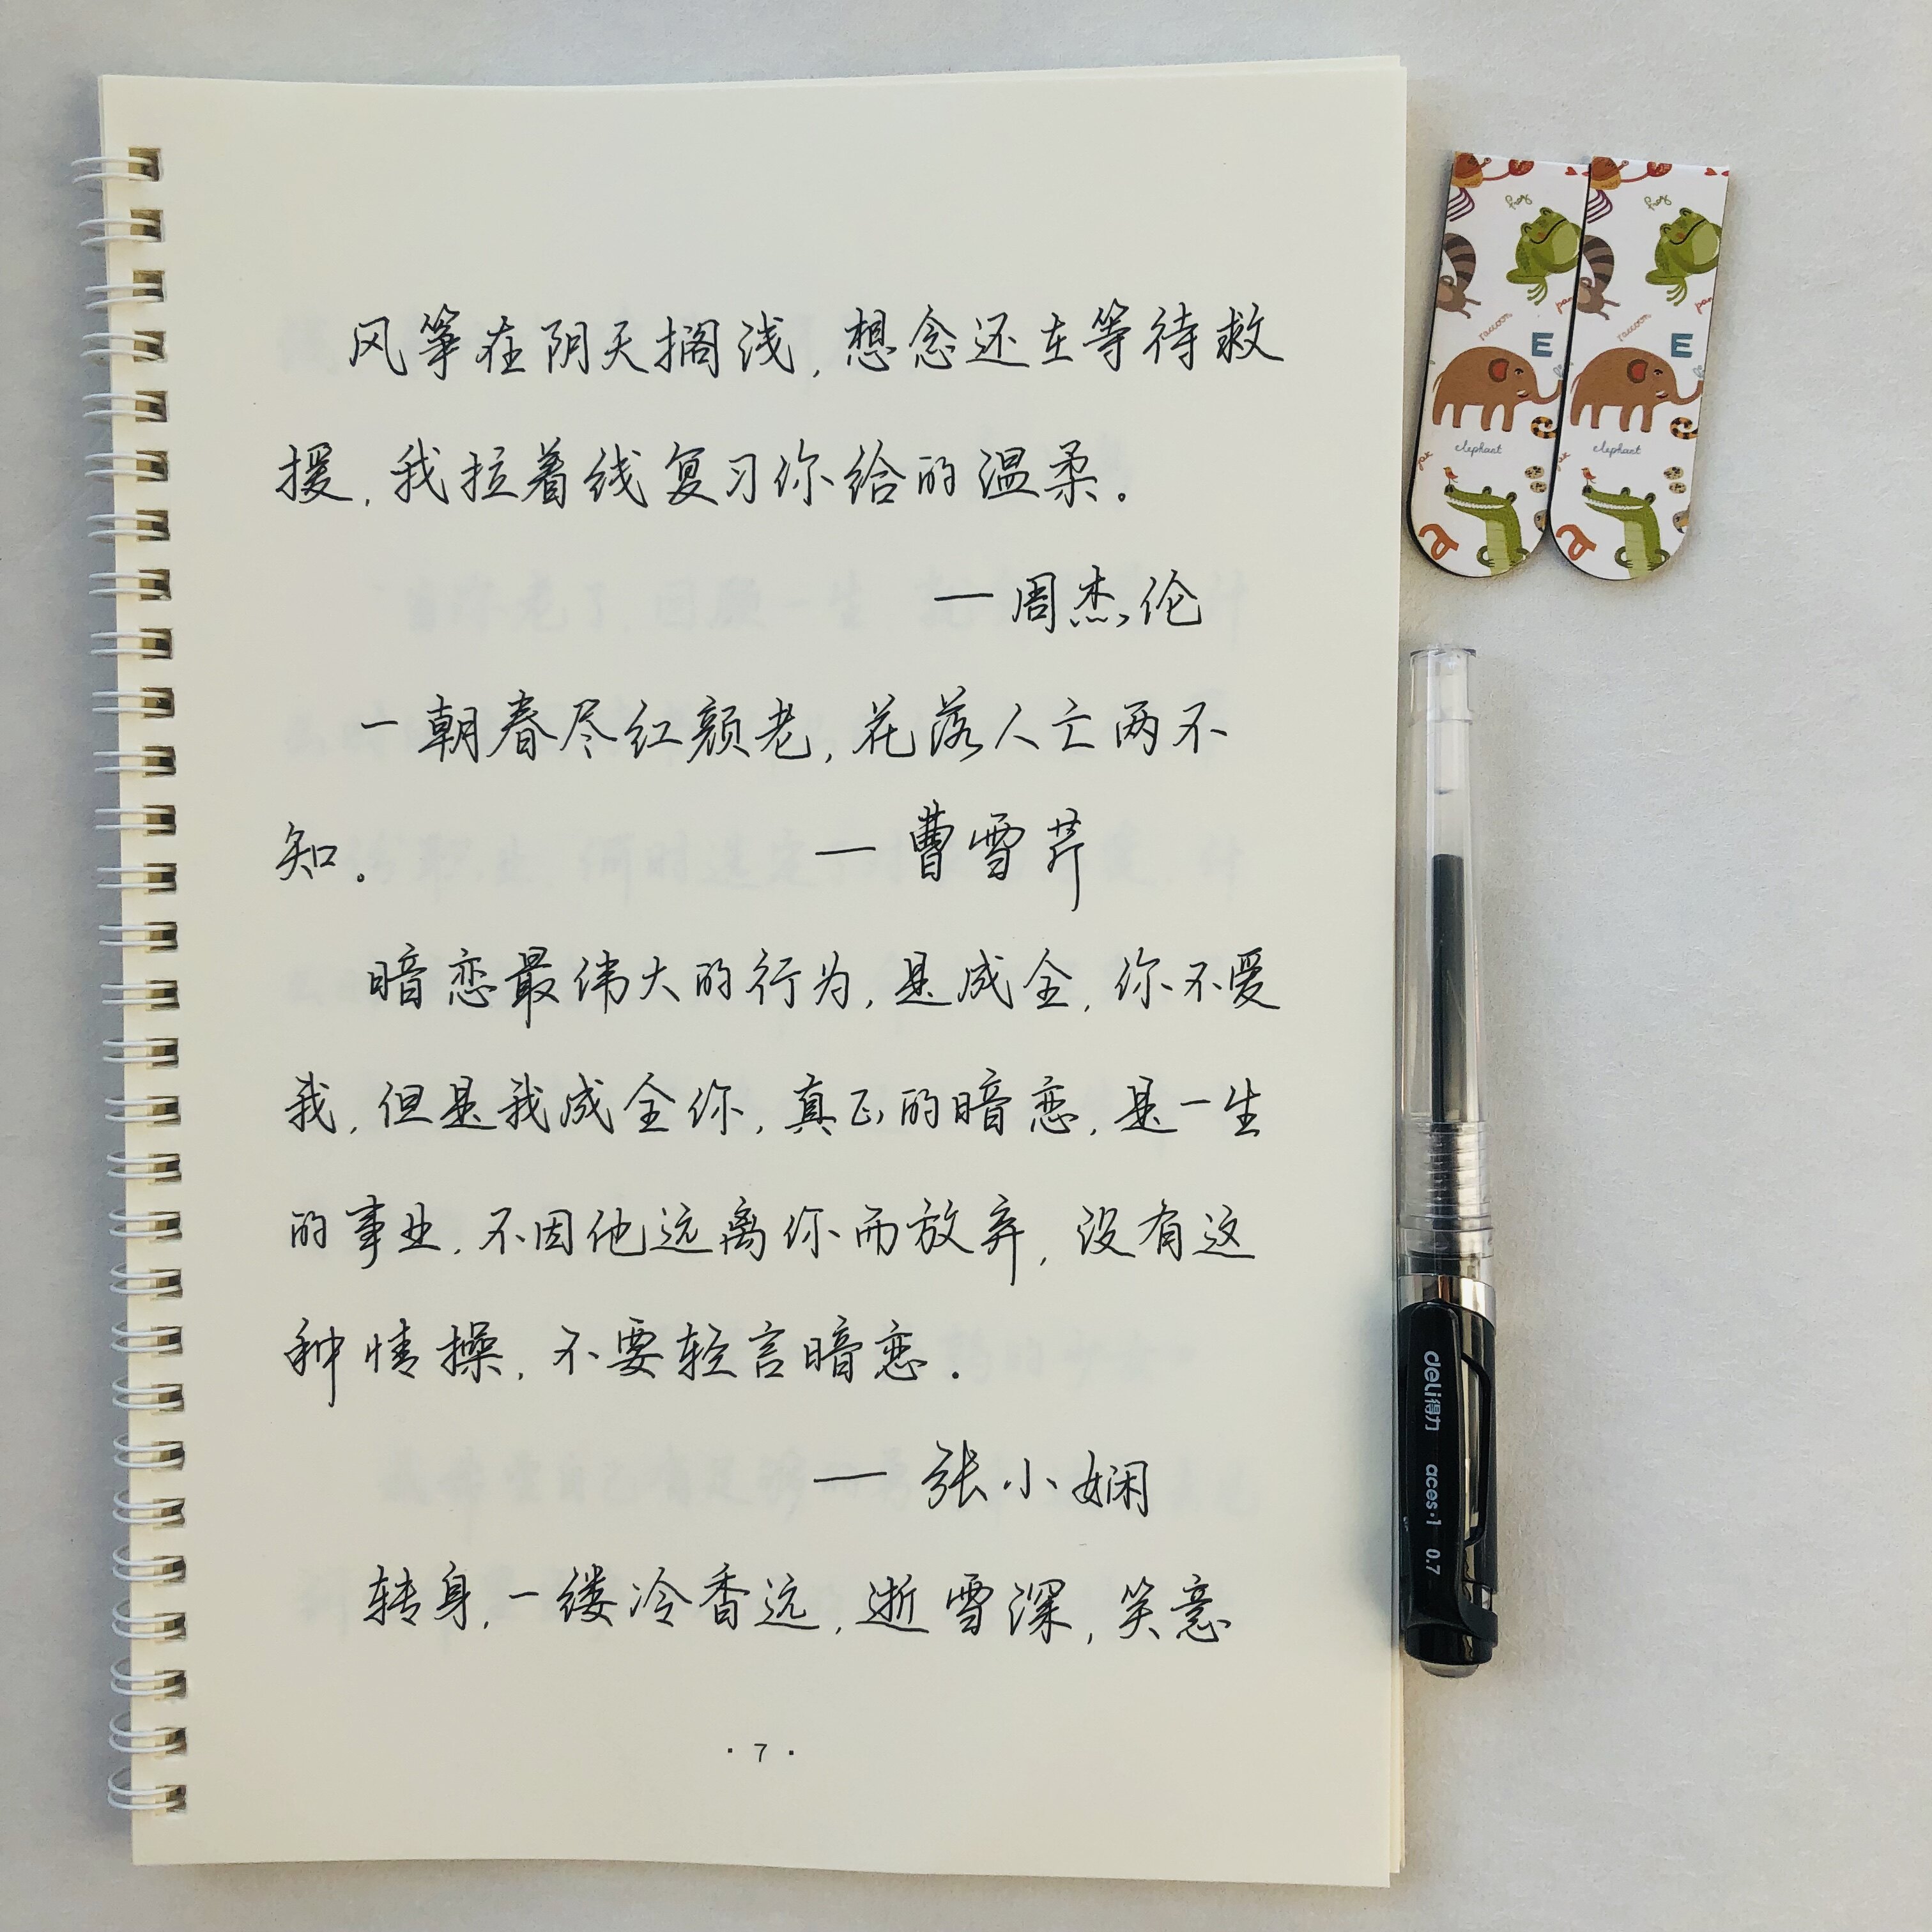 风筝在阴天搁浅,想念还在等待救
援,我拉着线复习你给的温柔。
—周杰伦
一朝春尽红颜老,花落人亡两不
知。 —曹雪芹
暗恋最伟大的行为,是成全,你不爱
我,但是我成全你,真正的暗恋,是一生
的事业,不因他远离你而放弃,没有这
种情操,不要轻言暗恋.
—张小娴
转身,一缕冷香远,逝雪深,笑意
·7·
frog
raccoon
E
elephant
a
frog
raccoon
E
elephant
a
deli得力 aces·1 0.7